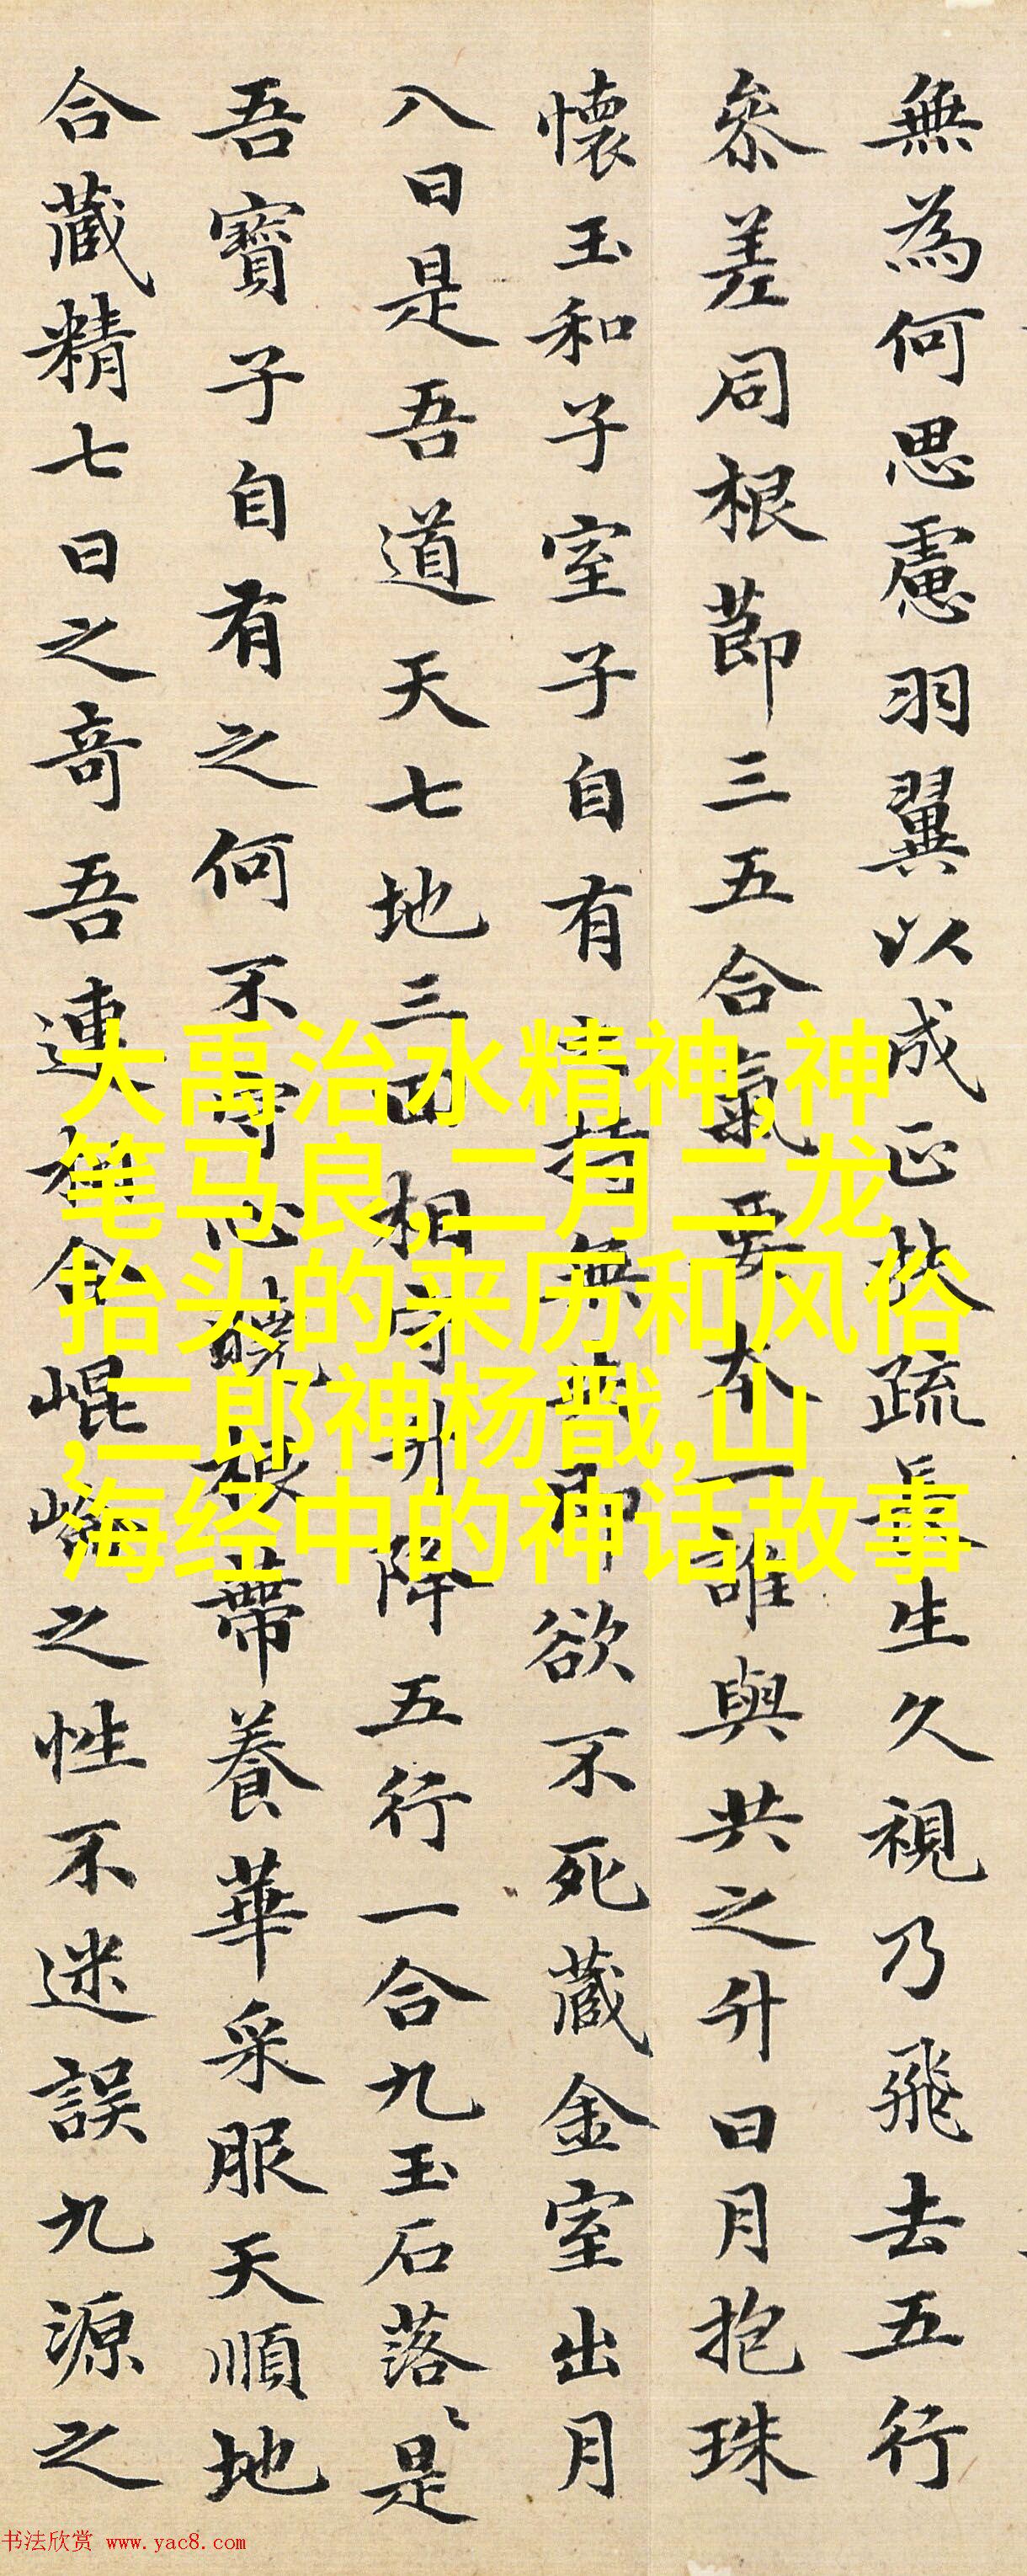 無為何思慮羽翼以成正扶疏長生久視乃飛去五行
參差同根節三五合氣要本一誰與共之升日月抱珠
懷玉和子室子自有之持無失即欲不死藏金室出月
八日是吾道天七地三回相守升降五行一合九玉石落〻是
吾寶子自有之何不守心曉根蒂養華采服天順地
合藏精七日之奇吾連相舍崐崘之性不迷誤九源之
大禹治水精神,神
笔马良,二月二龙
抬头的来历和风俗
,二郎神杨戬,山
海经中的神话故事
书法欣赏 www.yac8.com